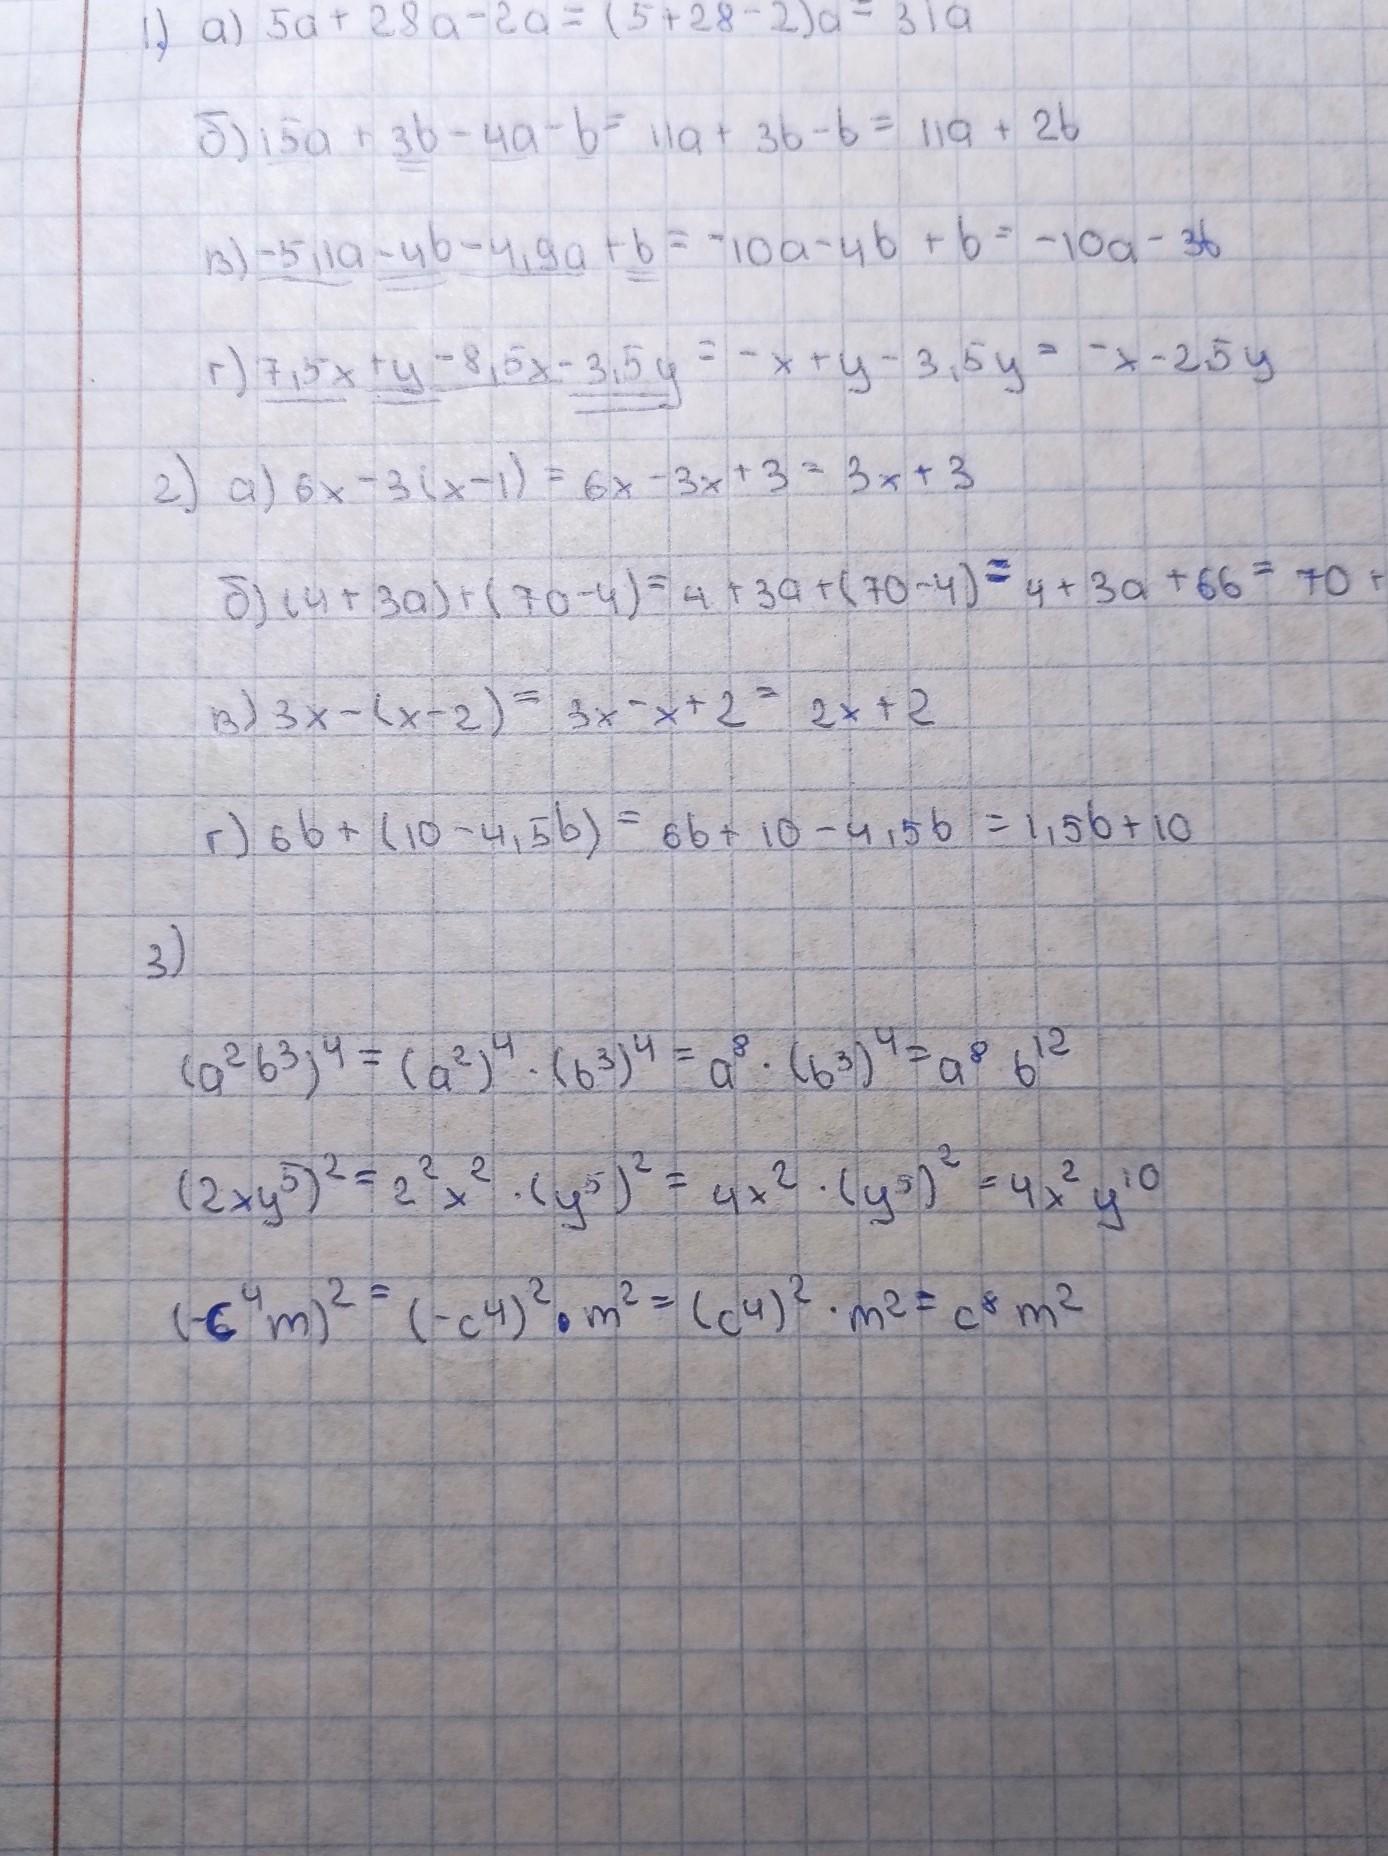 1) а) 5a + 28a - 2a = (5 + 28 - 2)a = 31a
б) 15a + 3b - 4a - b = 11a + 3b - b = 11a + 2b
в) -5,1a - 4b - 4,9a + b = -10a - 4b + b = -10a - 3b
г) 7,5x + y - 8,5x - 3,5y = -x + y - 3,5y = -x - 2,5y
2) а) 6x - 3(x - 1) = 6x - 3x + 3 = 3x + 3
б) (4 + 3a) + (70 - 4) = 4 + 3a + (70 - 4) = 4 + 3a + 66 = 70 +
в) 3x - (x - 2) = 3x - x + 2 = 2x + 2
г) 6b + (10 - 4,5b) = 6b + 10 - 4,5b = 1,5b + 10
3)
(a²b³)⁴ = (a²)⁴ · (b³)⁴ = a⁸ · (b³)⁴ = a⁸ b¹²
(2xy⁵)² = 2²x² · (y⁵)² = 4x² · (y⁵)² = 4x² y¹⁰
(-c⁴m)² = (-c⁴)² · m² = (c⁴)² · m² = c⁸ m²